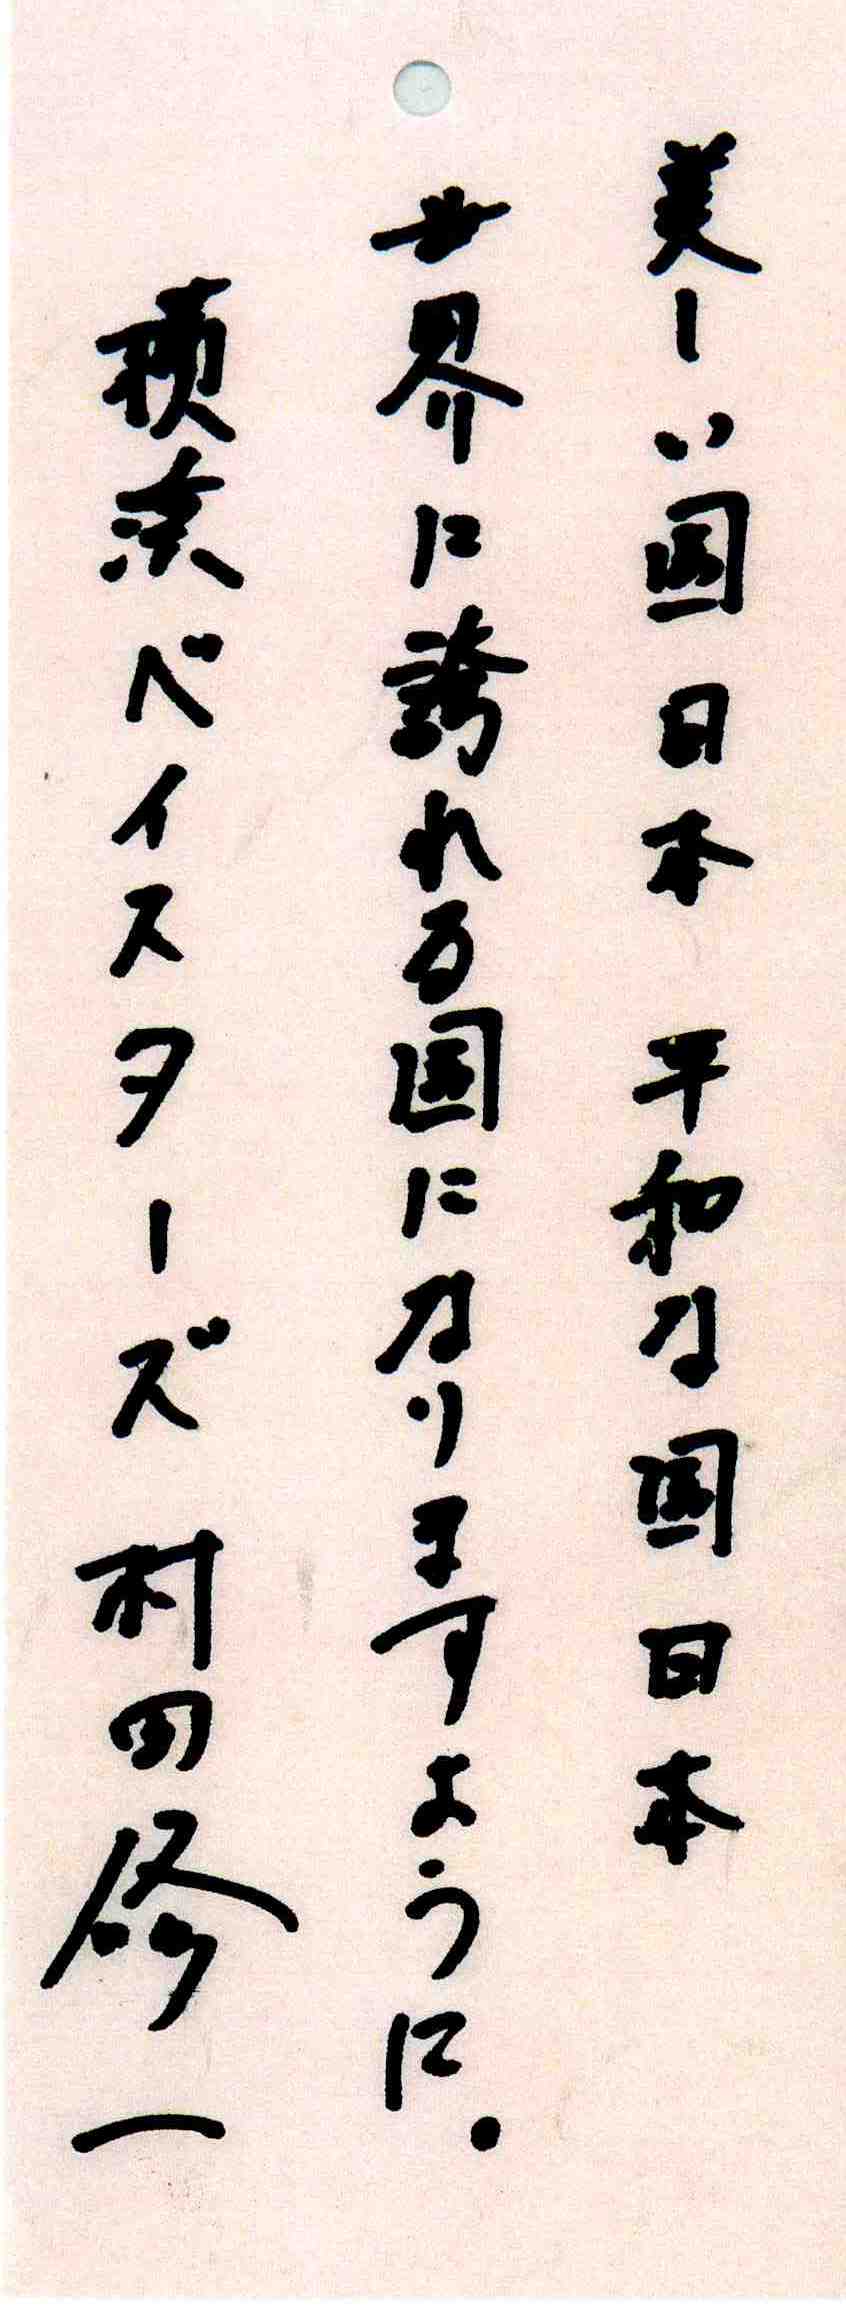 美しい国日本 平和な国日本
世界に誇れる国になりますように.
横浜ベイスターズ 村田修一